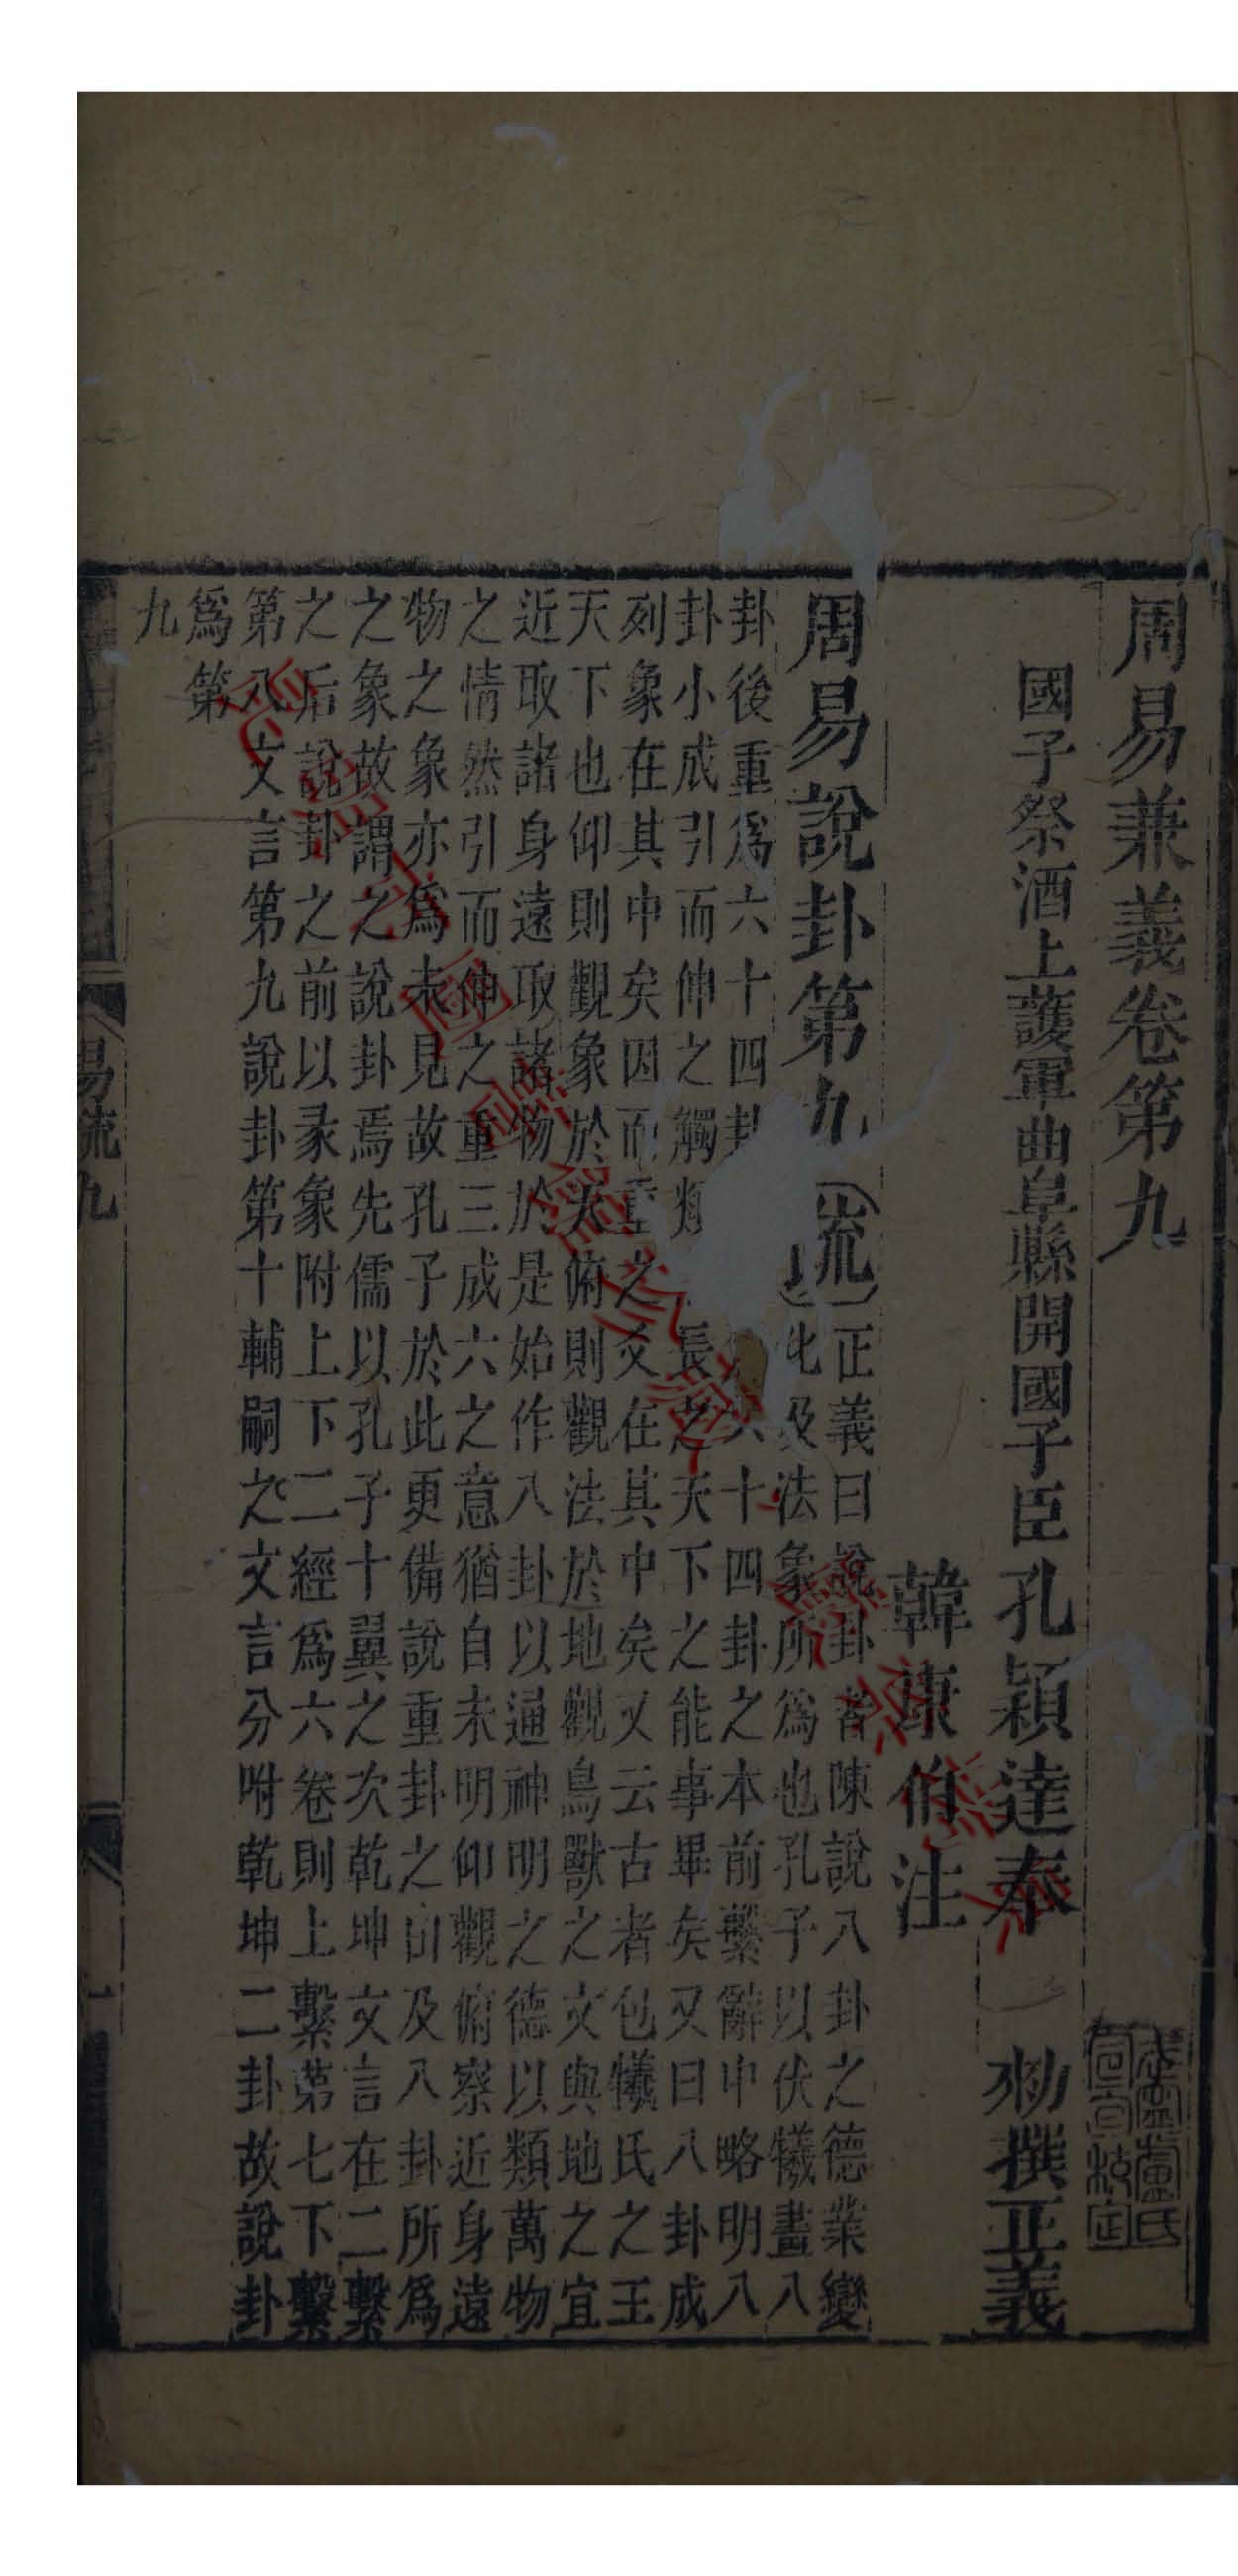 周易兼義卷第九
國子祭酒上護軍曲阜縣開國子臣孔穎達奉 勑撰正義
韓康伯注
周易說卦第九 疏 正義曰說卦者陳說八卦之德業變
化及法象所爲也孔子以伏犧畫八
卦後重爲六十四卦 六十四卦之本前繫辭中略明八
卦小成引而伸之觸類 長之天下之能事畢矣又曰八卦成
列象在其中矣因而重之爻在其中矣又云古者包犧氏之王
天下也仰則觀象於天俯則觀法於地觀鳥獸之文與地之宜
近取諸身遠取諸物於是始作八卦以通神明之德以類萬物
之情然引而伸之重三成六之意猶自未明仰觀俯察近身遠
物之象亦爲未見故孔子於此更備說重卦之由及八卦所爲
之象故謂之說卦焉先儒以孔子十翼之次乾坤文言在二繫
之后說卦之前以彖象附上下二經爲六卷則上繫第七下繫
第八文言第九說卦第十輔嗣之文言分附乾坤二卦故說卦
爲第
九
易疏九